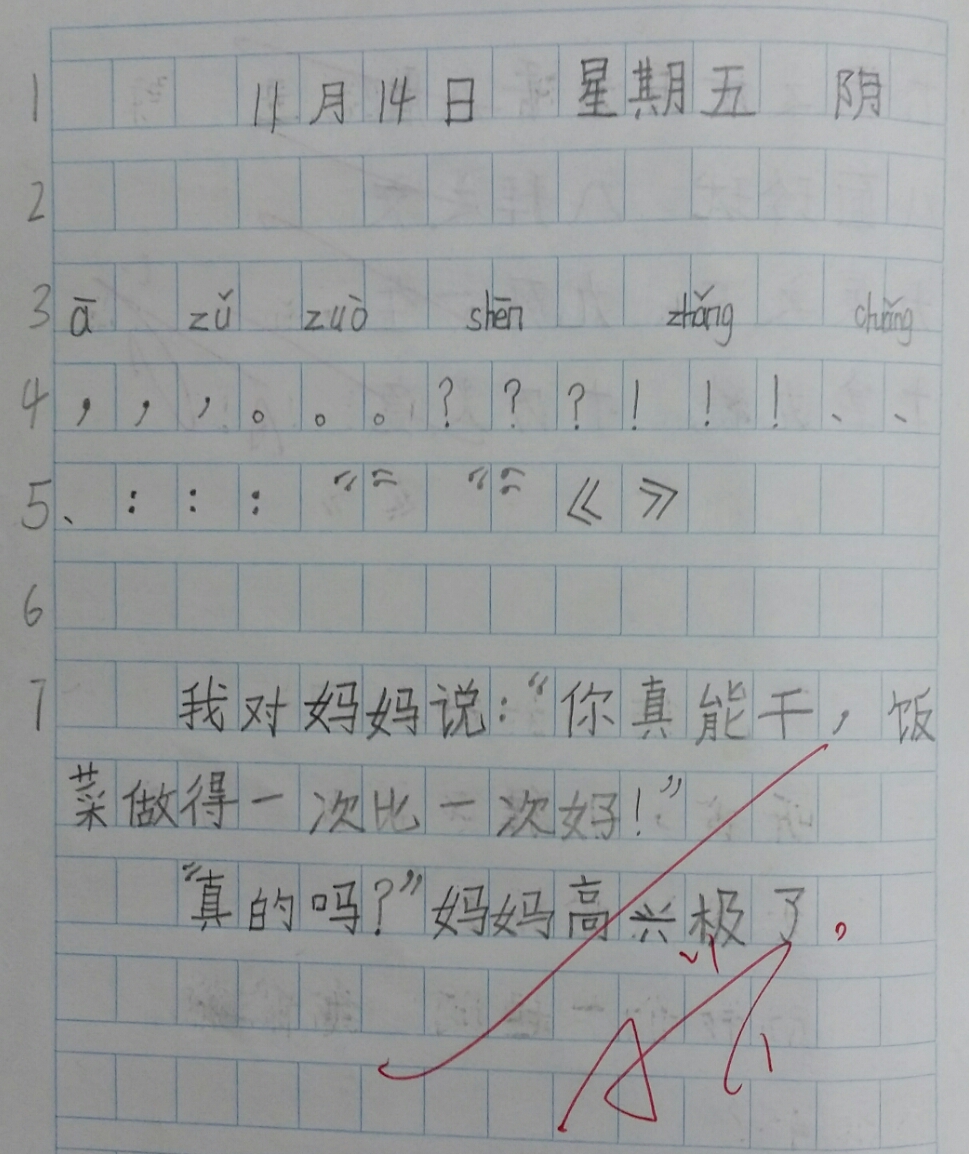 1 11月14日 星期五 阴
2
3 ā zǔ zuò shēn zhǎng chuǎng
4 ， ， ， 。 。 。 ？ ？ ？ ！ ！ ！ 、 、
5 、 ： ： ： “ ” “ ” 《 》
6
7 我对妈妈说：“你真能干，饭
菜做得一次比一次好！”
“真的吗？”妈妈高兴极了。